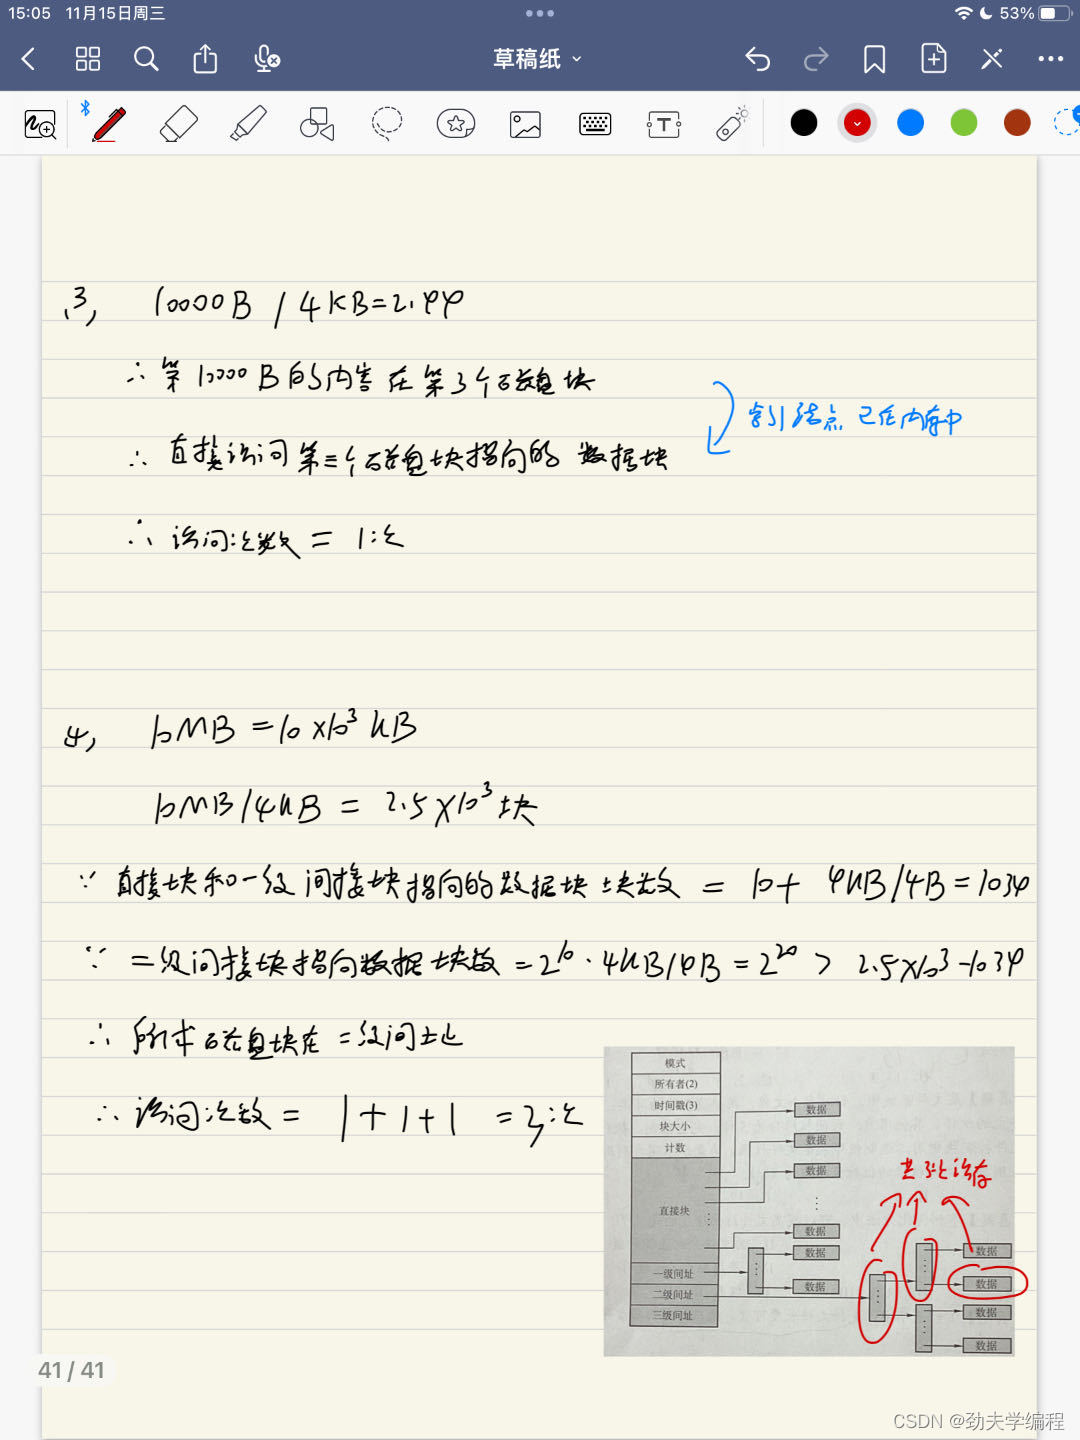 15:05 11月15日周三
53%
草稿纸
3, 10000B / 4KB=2.44
∴ 第10000B的内容在第3个磁盘块
索引结点已在内存中
∴ 直接访问第三个磁盘块指向的数据块
∴ 访问次数 = 1次
4, 10MB = 10×10³KB
10MB/4KB = 2.5×10³块
∵ 直接块和一级间接块指向的数据块块数 = 10+ 4KB/4B=1034
∵ 二级间接块指向数据块数 = 2¹⁰·4KB/4B = 2²⁰ > 2.5×10³-1034
∴ 所求磁盘块在二级间址
∴ 访问次数 = 1+1+1 =3次
模式
所有者(2)
时间戳(3)
块大小
计数
直接块
一级间址
二级间址
三级间址
数据
数据
数据
数据
数据
数据
共3次访存
数据
数据
数据
数据
41 / 41
CSDN @劲夫学编程